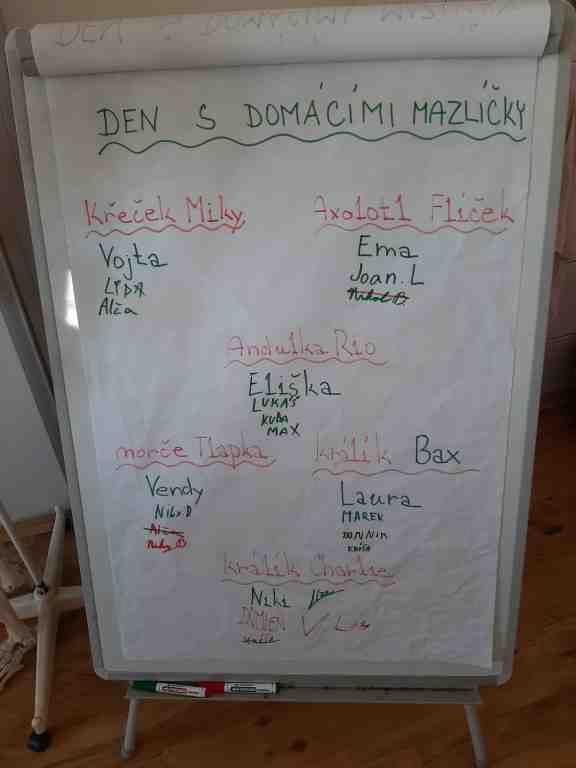 DEN S DOMÁCÍMI MAZLÍČKY
Křeček Miky
Vojta
LÍDA
Alča
Axolotl Flíček
Ema
Joan. L
Nikol B.
Andulka Rio
Eliška
LUKÁŠ
KUBA
MAX
morče Tlapka
Vendy
Niky B
Alča
Niky B
králík Bax
Laura
MAREK
králík Charlie
Niki